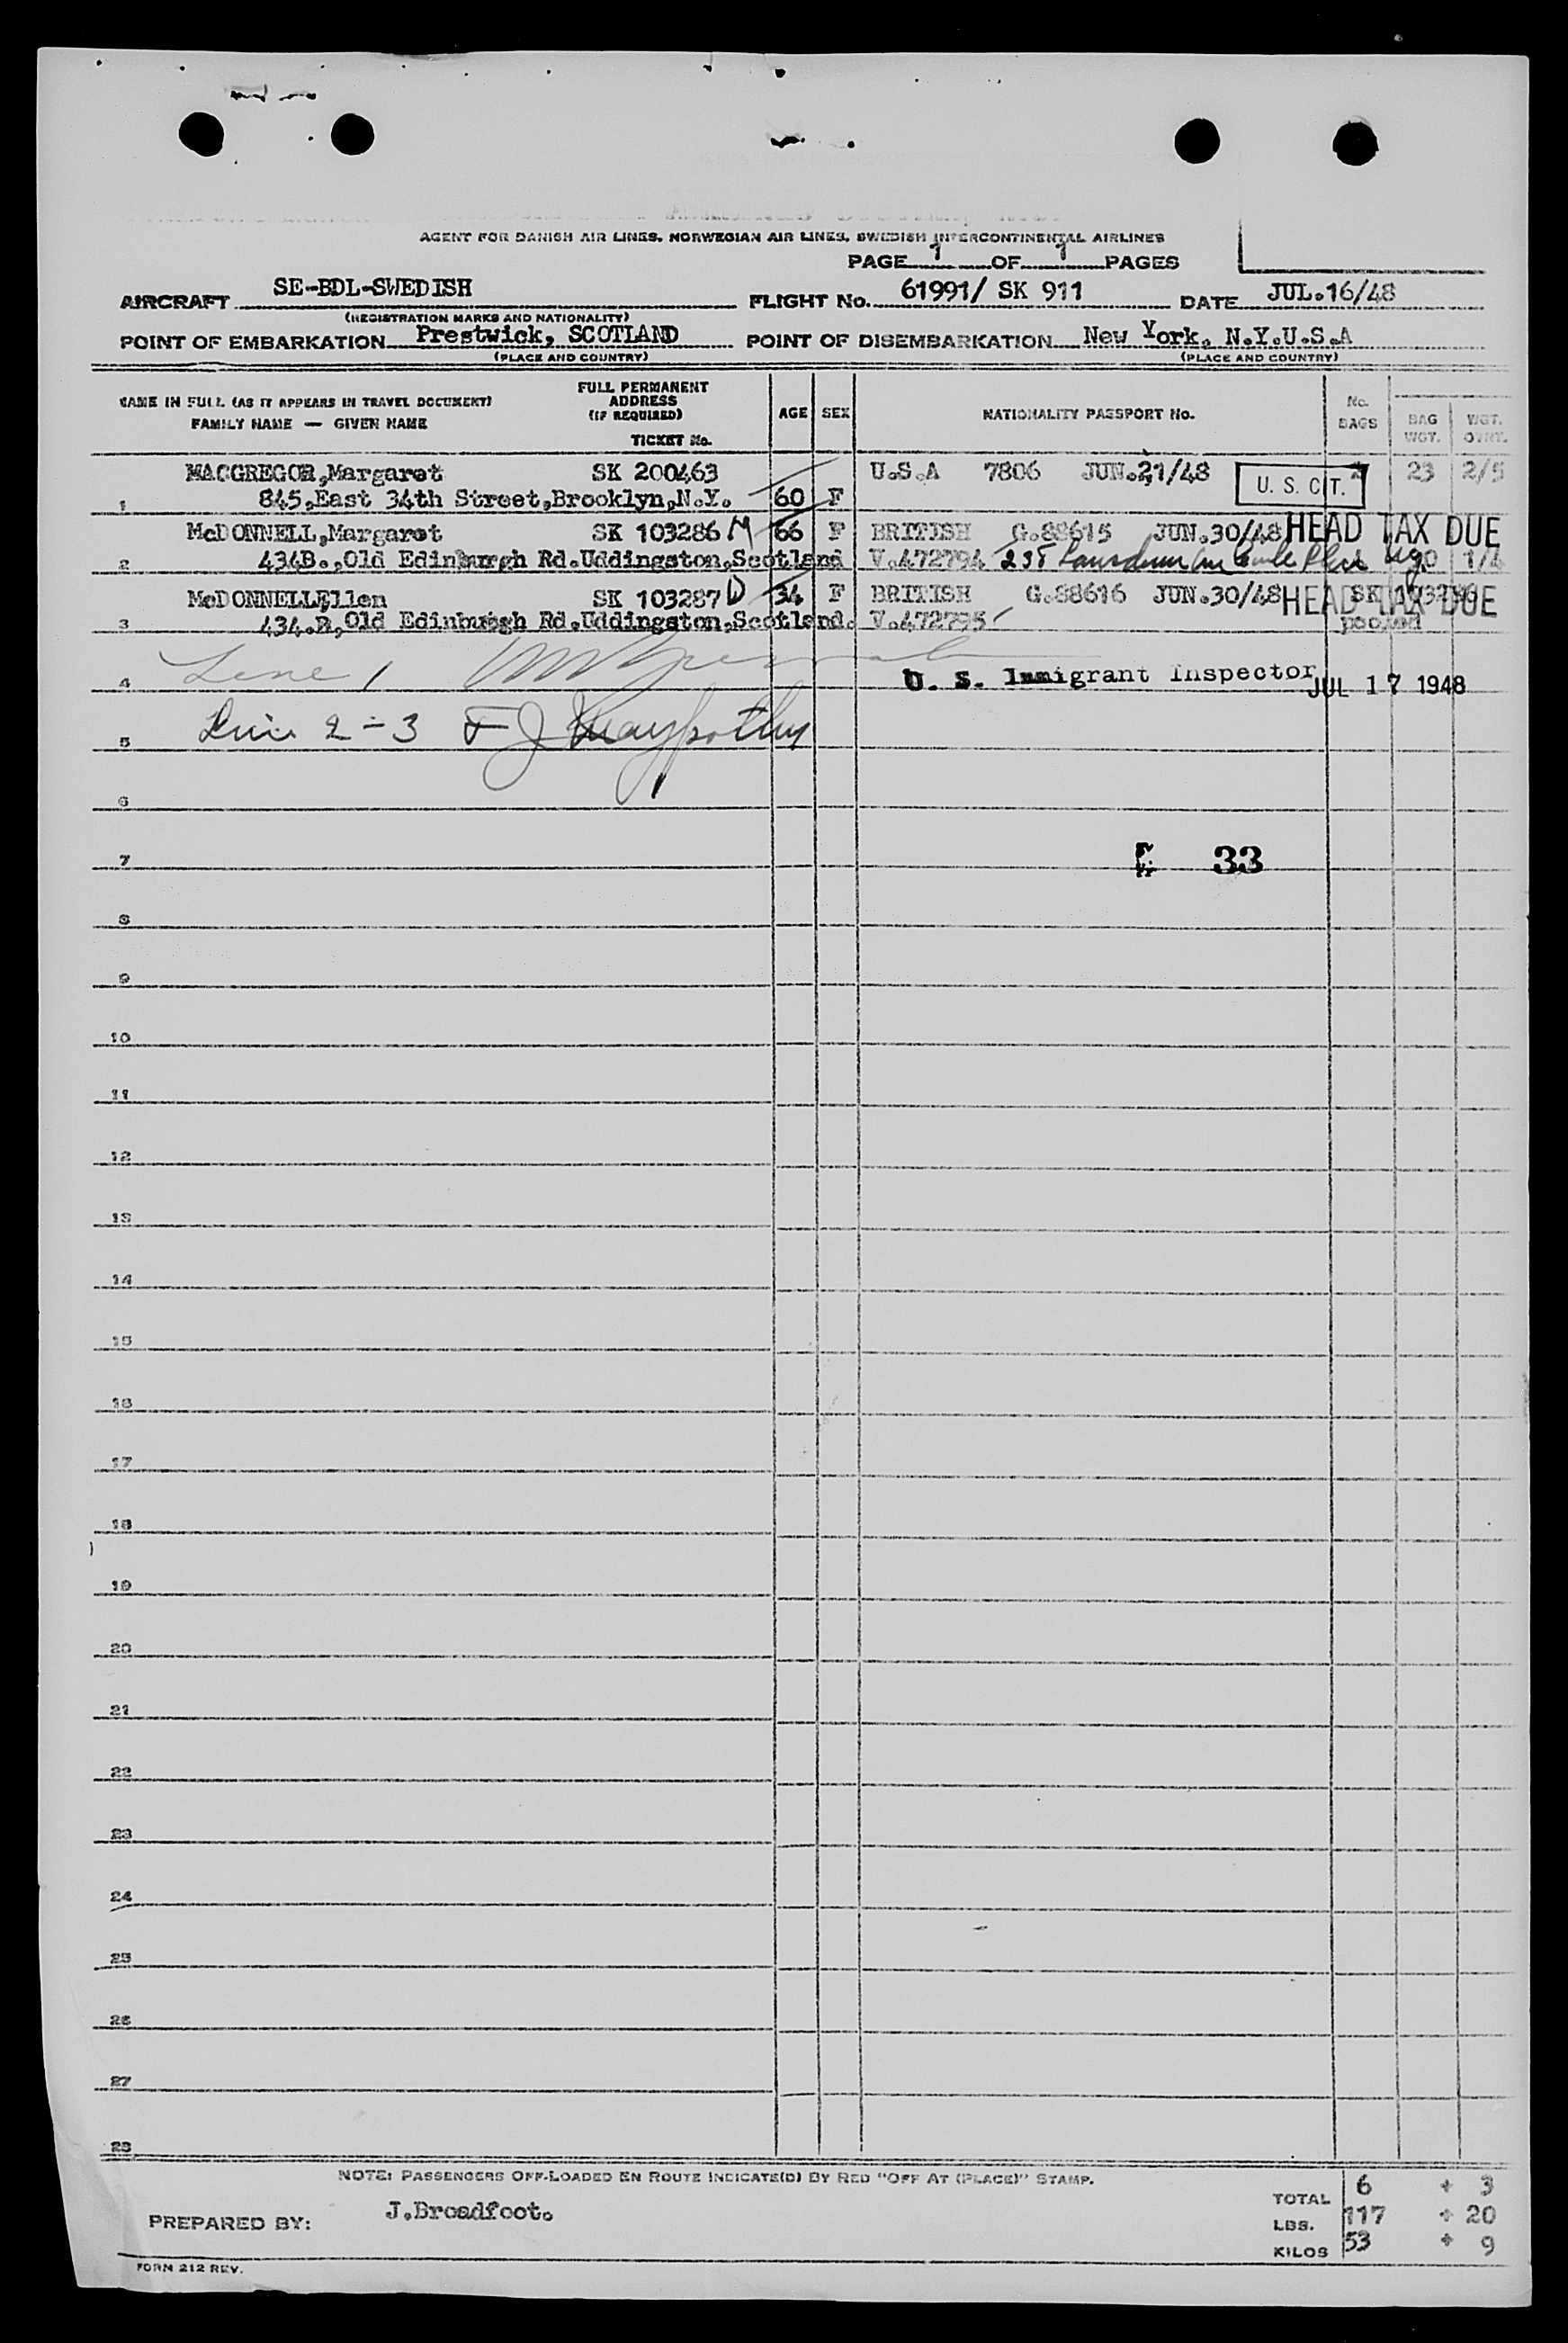 AGENT FOR DANISH AIR LINES, NORWEGIAN AIR LINES, SWEDISH INTERCONTINENTAL AIRLINES
PAGE 1 OF 1 PAGES
AIRCRAFT SE-BDL-SWEDISH FLIGHT No. 61991/ SK 911 DATE JUL.16/48
(REGISTRATION MARKS AND NATIONALITY)
POINT OF EMBARKATION Prestwick, SCOTLAND POINT OF DISEMBARKATION New York, N.Y.U.S.A
(PLACE AND COUNTRY) (PLACE AND COUNTRY)
NAME IN FULL (AS IT APPEARS IN TRAVEL DOCUMENT)
FAMILY NAME — GIVEN NAME
FULL PERMANENT
ADDRESS
(IF REQUIRED)
TICKET No.
AGE SEX NATIONALITY PASSPORT No.
No.
BAGS
BAG
WGT.
WGT.
OVWT.
MACGREGOR,Margaret SK 200463 U.S.A 7806 JUN.21/48 U. S. CIT. 23 2/5
1 845,East 34th Street,Brooklyn,N.Y. 60 F
McDONNELL,Margaret SK 103286 M 66 F BRITISH G.88615 JUN.30/48 HEAD TAX DUE
2 434B.,Old Edinburgh Rd.Uddingston,Scotland V.472794 238 1/4
McDONNELLEllen SK 103287 D 34 F BRITISH G.88616 JUN.30/48 HEAD TAX DUE
3 434.B,Old Edinburgh Rd.Uddingston,Scotland. V.472795 pooled
4 Line 1 U. S. Immigrant Inspector JUL 17 1948
5 Line 2-3 F J
6
7 33
8
9
10
11
12
13
14
15
16
17
18
19
20
21
22
23
24
25
26
27
28
NOTE: PASSENGERS OFF-LOADED EN ROUTE INDICATE(D) BY RED "OFF AT (PLACE)" STAMP.
PREPARED BY: J.Broadfoot.
TOTAL 6 + 3
LBS. 117 + 20
KILOS 53 + 9
FORM 212 REV.